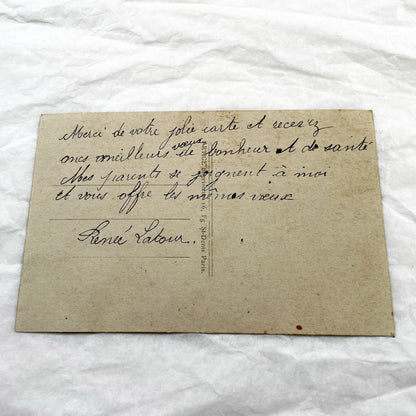 Merci de votre jolie carte et recevez
mes meilleurs vœux de bonheur et de santé
Mes parents se joignent à moi
et vous offre les mêmes vœux
Renée Latour.
Fg St-Denis Paris.